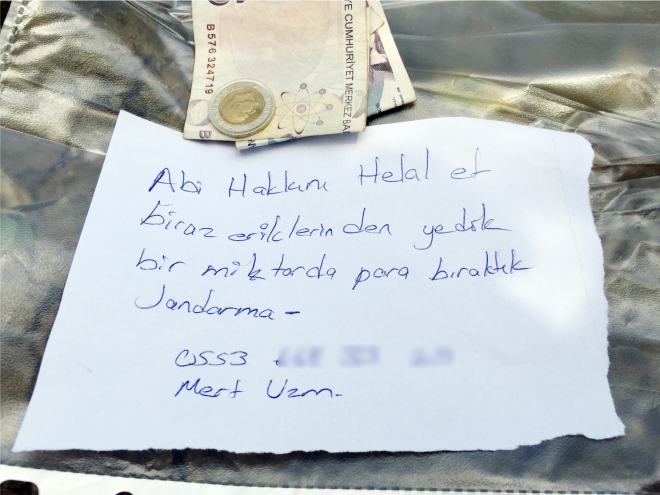 B576324719
YE CUMHURİYET MERKEZ BA
Abi Hakkını Helal et
biraz eriklerinden yedik
bir miktarda para bıraktık
Jandarma-
0553
Mert Uzm.